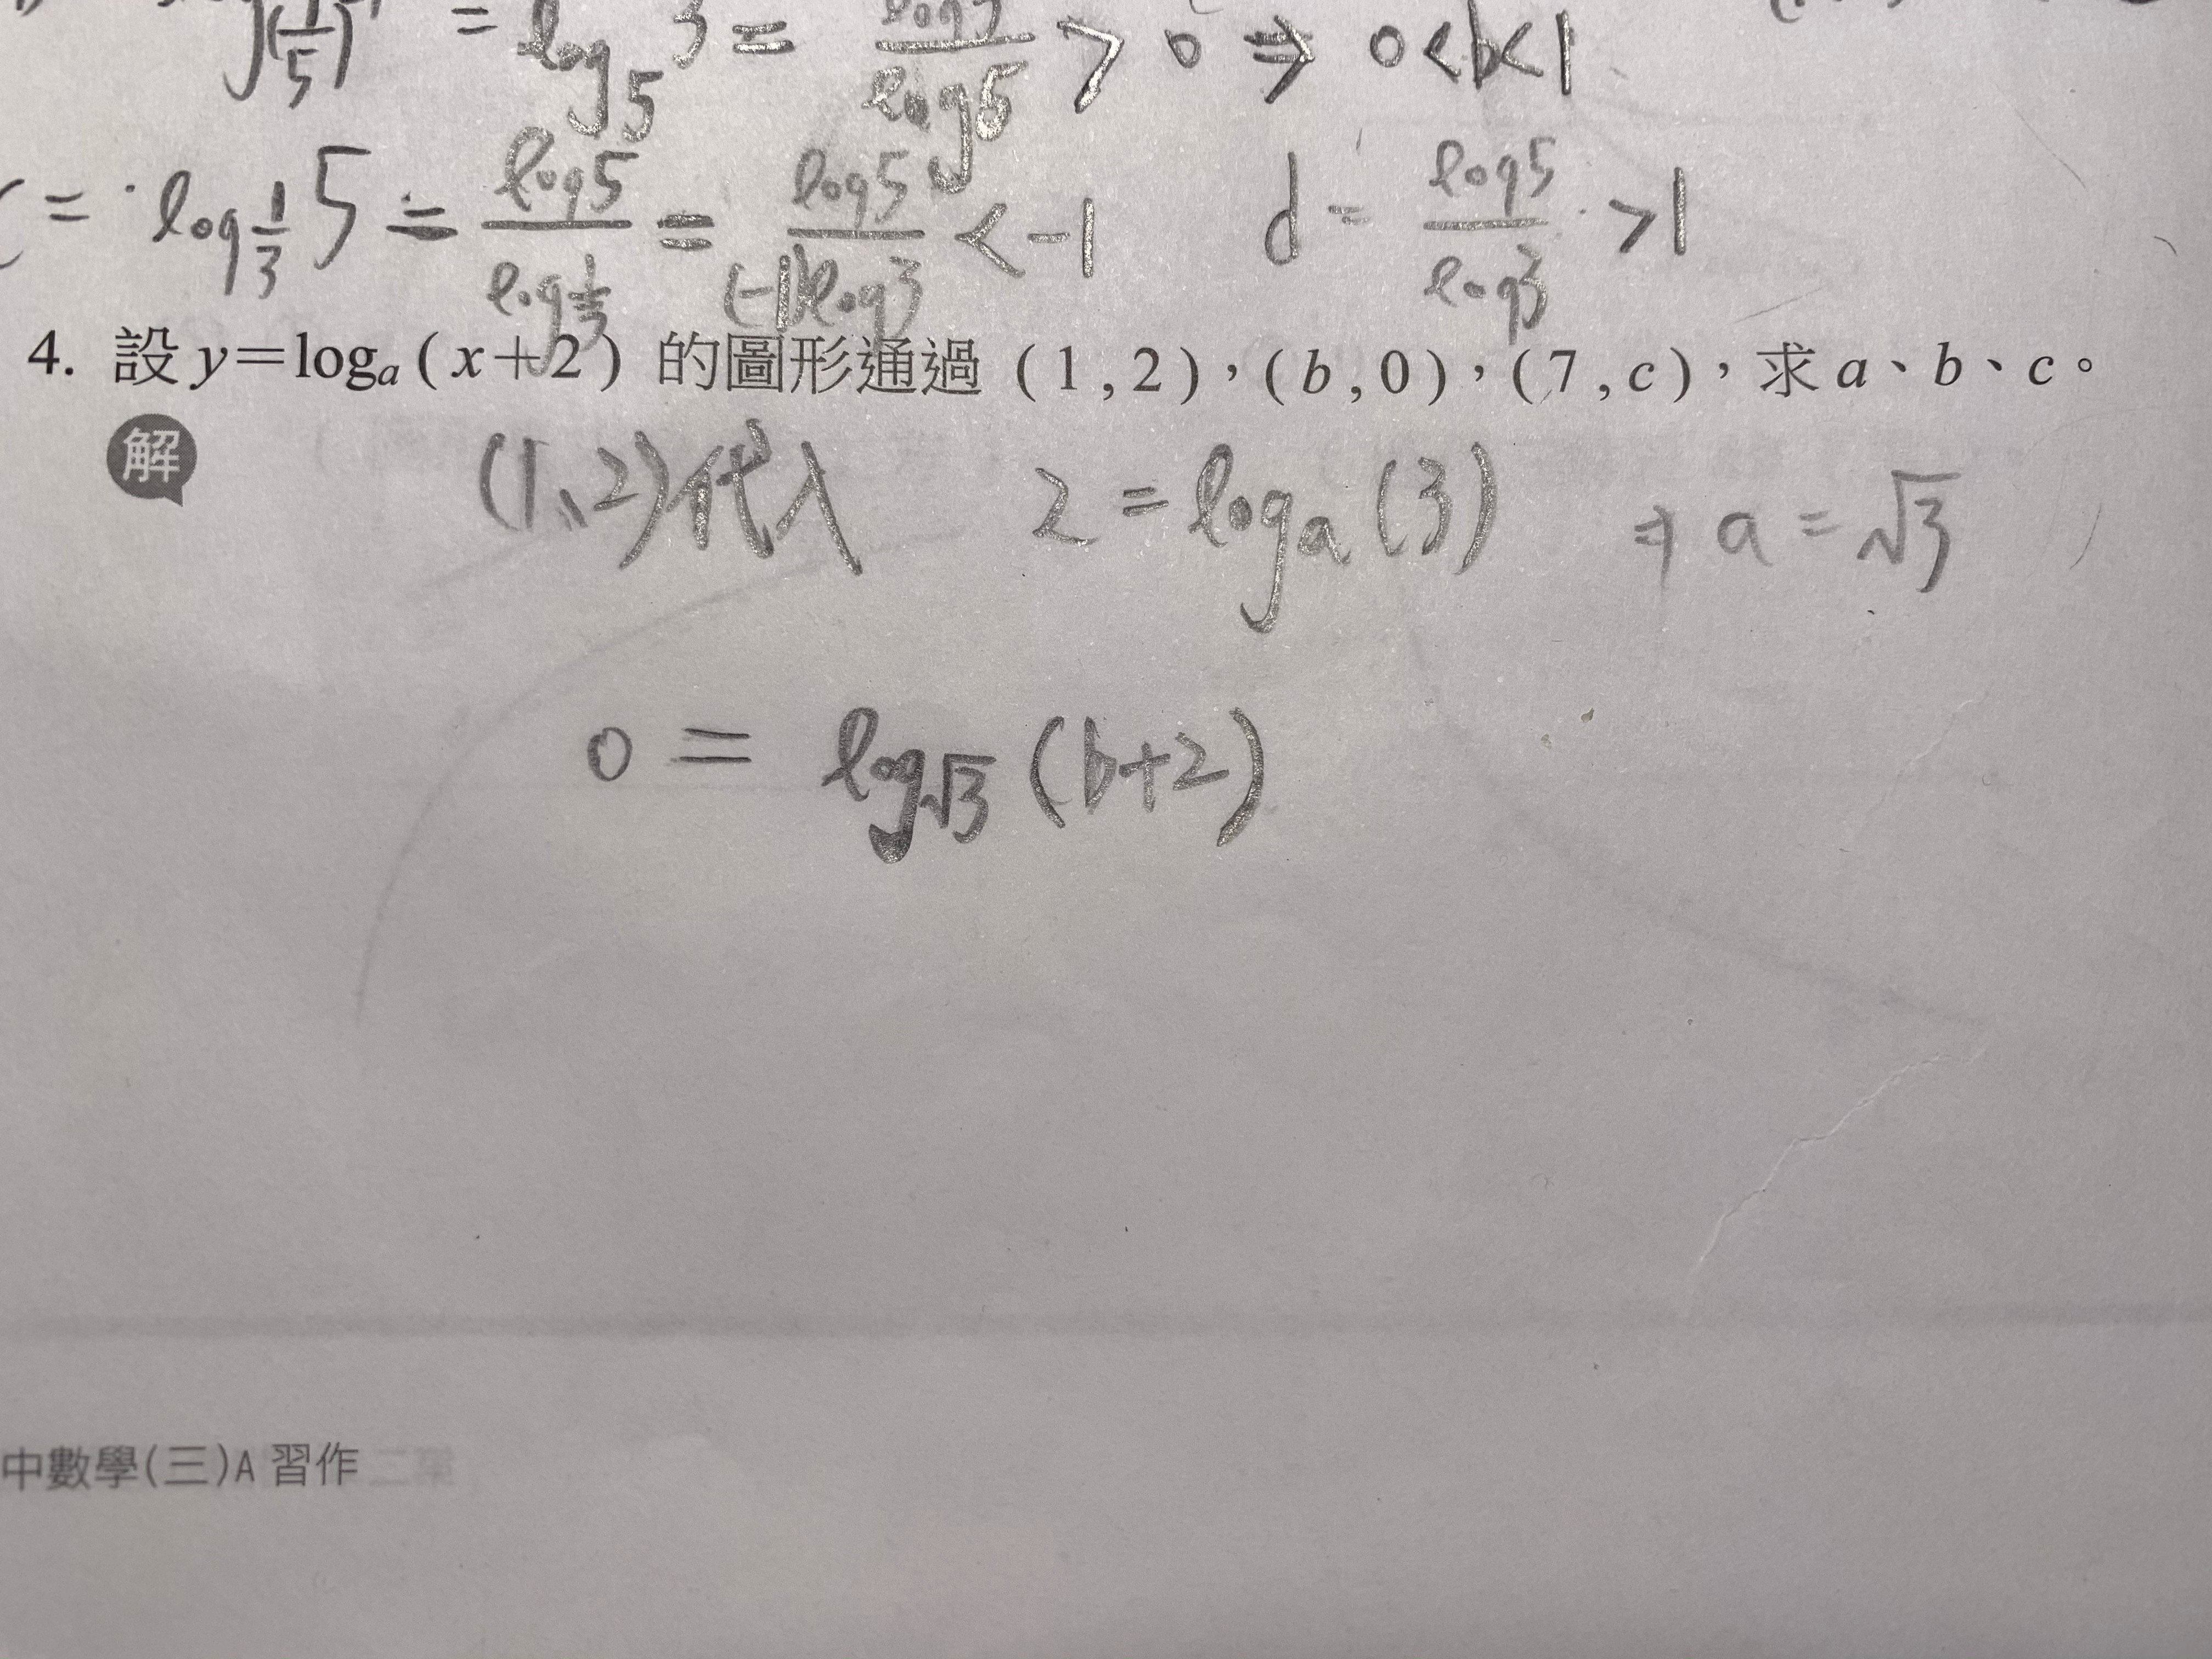 (1/5) = log₅ 3 = / log5 > 0 ⇒ 0<b<1
= log_{1/3} 5 = log5 / log 1/3 = log5 / (-1)log3 < -1 d = log5 / log3 > 1
4. 設 y=logₐ(x+2) 的圖形通過 (1,2),(b,0),(7,c),求 a、b、c。
解 (1、2)代入 2 = logₐ(3) ⇒ a = √3
0 = log_{√3} (b+2)
中數學(三)A 習作